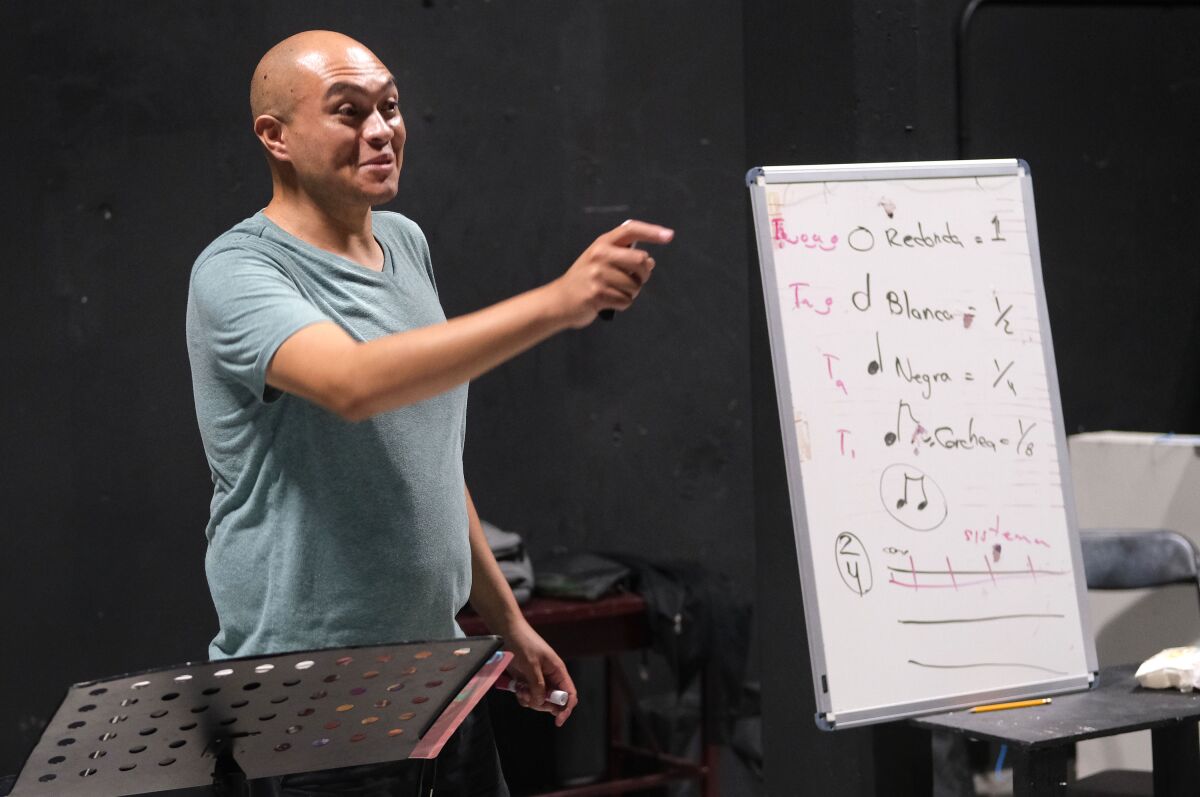 Redonda = 1
Tao Blanca = 1/2
Ta Negra = 1/4
Ti Corchea = 1/8
sistema
2/4